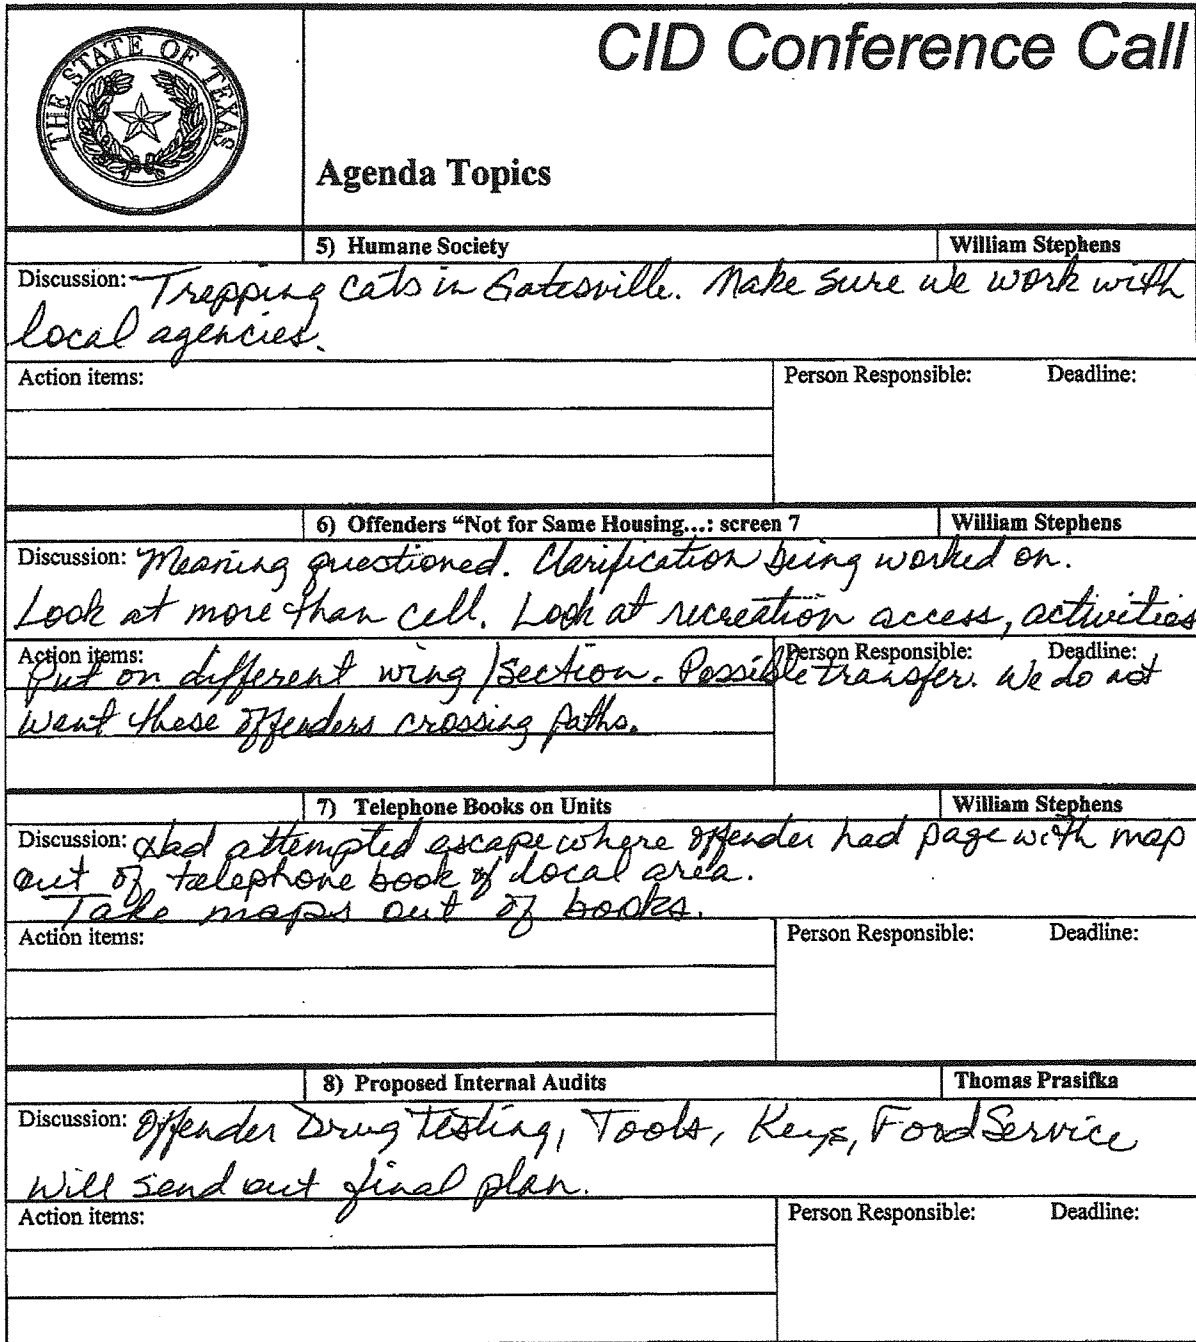 THE STATE OF TEXAS
CID Conference Call
Agenda Topics
5) Humane Society William Stephens
Discussion: - Trapping cats in Gatesville. Make sure we work with
local agencies.
Action items: Person Responsible: Deadline:
6) Offenders "Not for Same Housing...: screen 7 William Stephens
Discussion: Meaning questioned. Clarification being worked on.
Look at more than cell. Look at recreation access, activities
Action items: Person Responsible: Deadline:
Put on different wing/section. Possible transfer. We do not
want these offenders crossing paths.
7) Telephone Books on Units William Stephens
Discussion: Had attempted escape where offender had page with map
out of telephone book of local area.
Take maps out of books.
Action items: Person Responsible: Deadline:
8) Proposed Internal Audits Thomas Prasifka
Discussion: Offender Drug Testing, Tools, Keys, Food Service
Will send out final plan.
Action items: Person Responsible: Deadline: